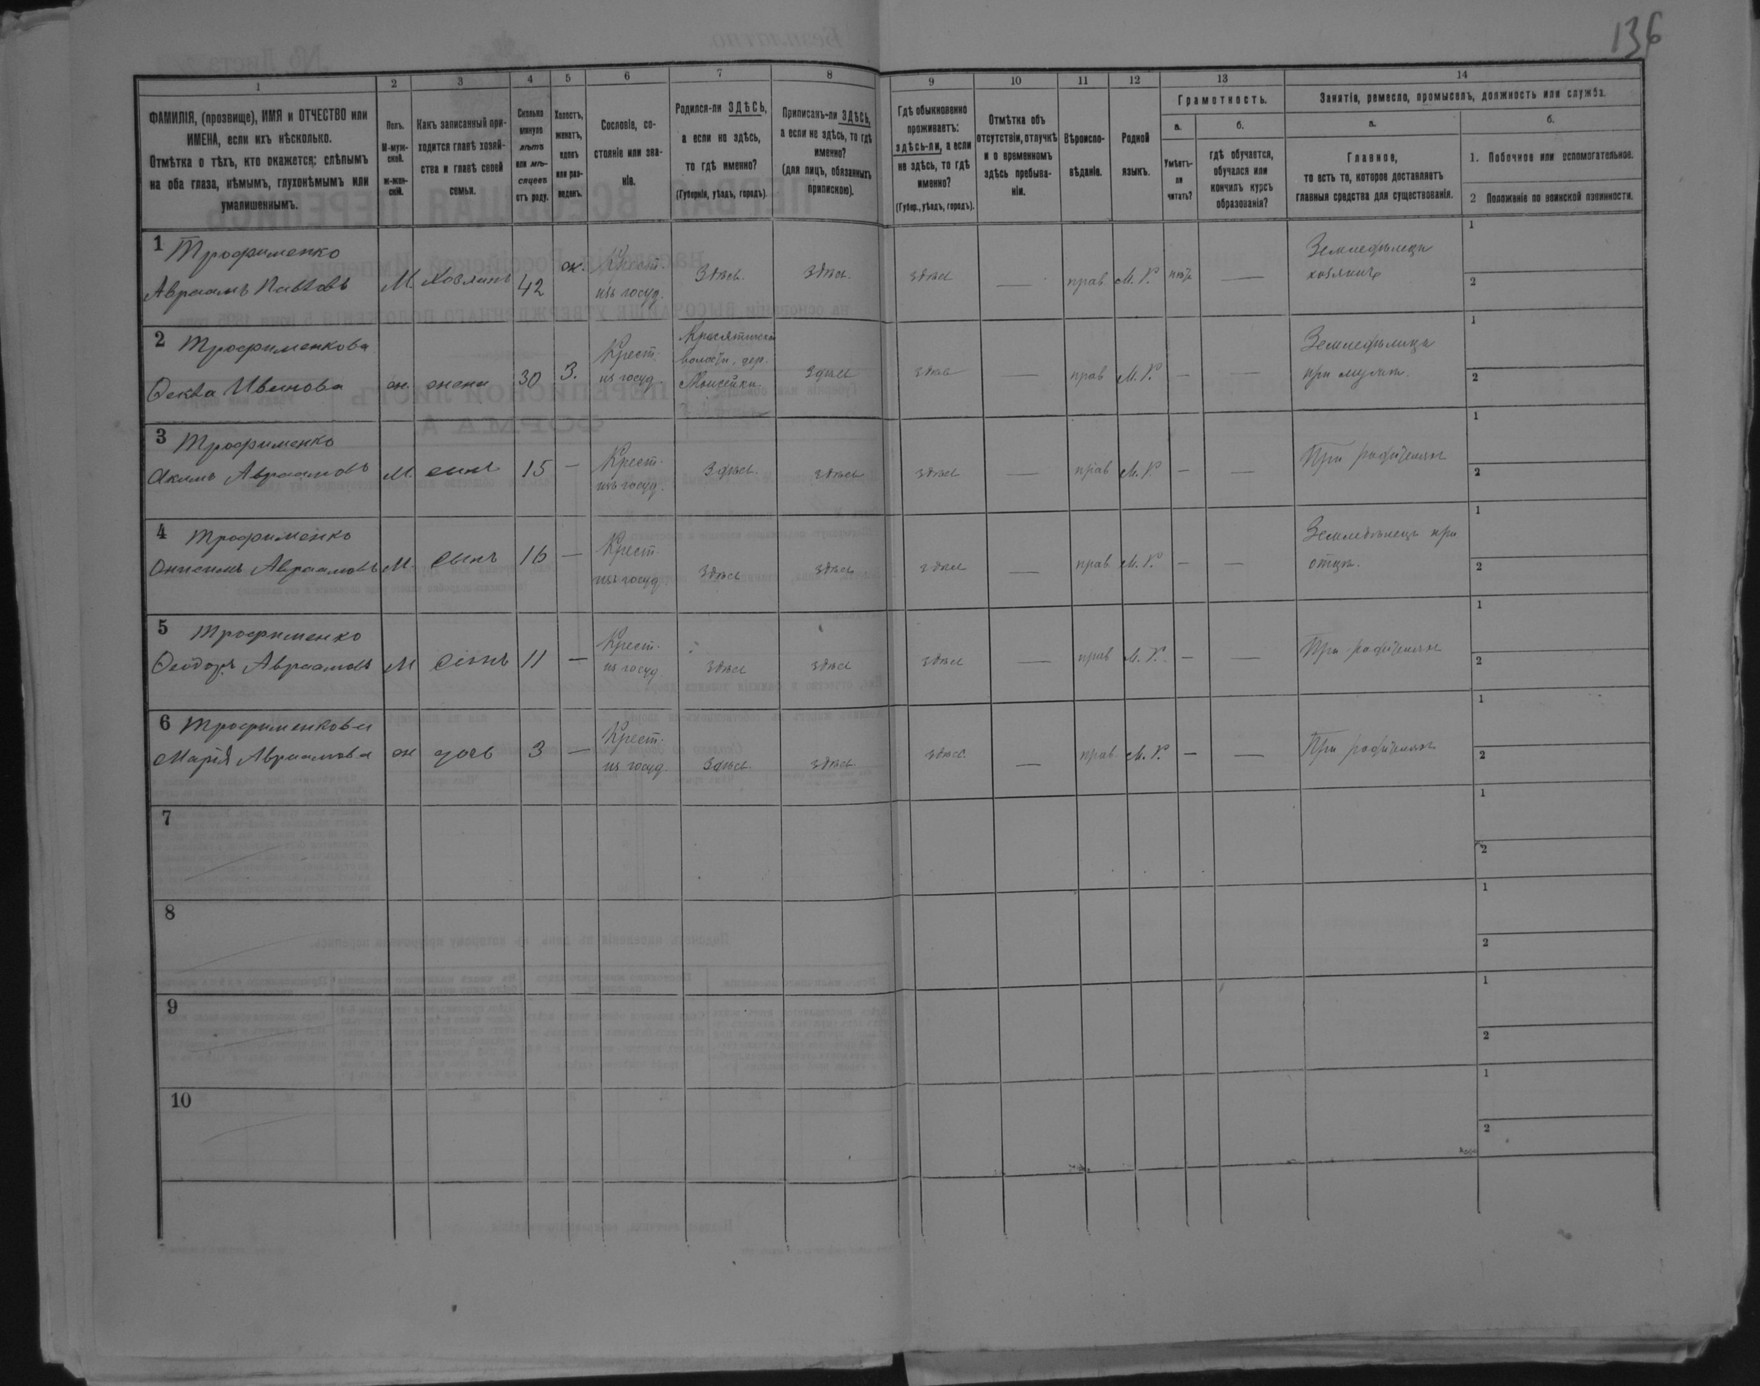 136
1
2
3
4
5
6
7
8
9
10
11
12
13
14
ФАМИЛІЯ, (прозвище), ИМЯ и ОТЧЕСТВО или
ИМЕНА, если ихъ нѣсколько.
Отмѣтка о тѣхъ, кто окажется: слѣпымъ
на оба глаза, нѣмымъ, глухонѣмымъ или
умалишеннымъ.
Полъ.
М-муж-
ской.
ж-жен-
скій.
Какъ записанный при-
ходится главѣ хозяй-
ства и главѣ своей
семьи.
Сколько
минуло
лѣтъ
или мѣ-
сяцевъ
отъ роду.
Холостъ,
женатъ,
вдовъ
или раз-
веденъ.
Сословіе, со-
стояніе или зва-
ніе.
Родился-ли ЗДѢСЬ,
а если не здѣсь,
то гдѣ именно?
(Губернія, уѣздъ, городъ).
Приписанъ-ли ЗДѢСЬ,
а если не здѣсь, то гдѣ
именно?
(для лицъ, обязанныхъ
припискою).
Гдѣ обыкновенно
проживаетъ:
здѣсь-ли, а если
не здѣсь, то гдѣ
именно?
(Губер., уѣздъ, городъ).
Отмѣтка объ
отсутствіи, отлучкѣ
и о временномъ
здѣсь пребыва-
ніи.
Вѣроиспо-
вѣданіе.
Родной
языкъ.
Грамотность.
а.
б.
Умѣетъ-
ли
читать?
гдѣ обучается,
обучался или
кончилъ курсъ
образованія?
Занятіе, ремесло, промыселъ, должность или служба.
а.
б.
Главное,
то есть то, которое доставляетъ
главныя средства для существованія.
1. Побочное или вспомогательное.
2 Положеніе по воинской повинности.
1 Трофименко
Авраамъ Павловъ М. Хозяинъ 42 ж. Крест. изъ госуд. Здѣсь. здѣсь. здѣсь — прав М. Р. — Земледѣлецъ
хозяинъ
1
2
2 Трофименкова
Ѳекла Иванова ж. жена 30 З. Крест. из госуд волости, дер. Моисейки здѣсь здѣсь прав М. Р. — — Земледѣлица
при мужѣ
1
2
3 Трофименко
Акимъ Авраамовъ М. сынъ 15 — Крест. изъ госуд. Здѣсь. здѣсь здѣсь — прав М. Р. — — При родителяхъ
1
2
4 Трофименко
Онисимъ Авраамовъ М сынъ 16 — Крест. изъ госуд. здѣсь здѣсь здѣсь — прав М. Р. — — Земледѣлецъ при
отцѣ.
1
2
5 Трофименко
Ѳеодоръ Авраамовъ М сынъ 11 — Крест. из госуд здѣсь здѣсь здѣсь — прав М. Р. — — При родителяхъ
1
2
6 Трофименкова
Марія Авраамова ж дочь 3 — Крест. из госуд. Здѣсь. здѣсь здѣсь — прав. М. Р. — — При родителяхъ
1
2
7
1
2
8
1
2
9
1
2
10
1
2